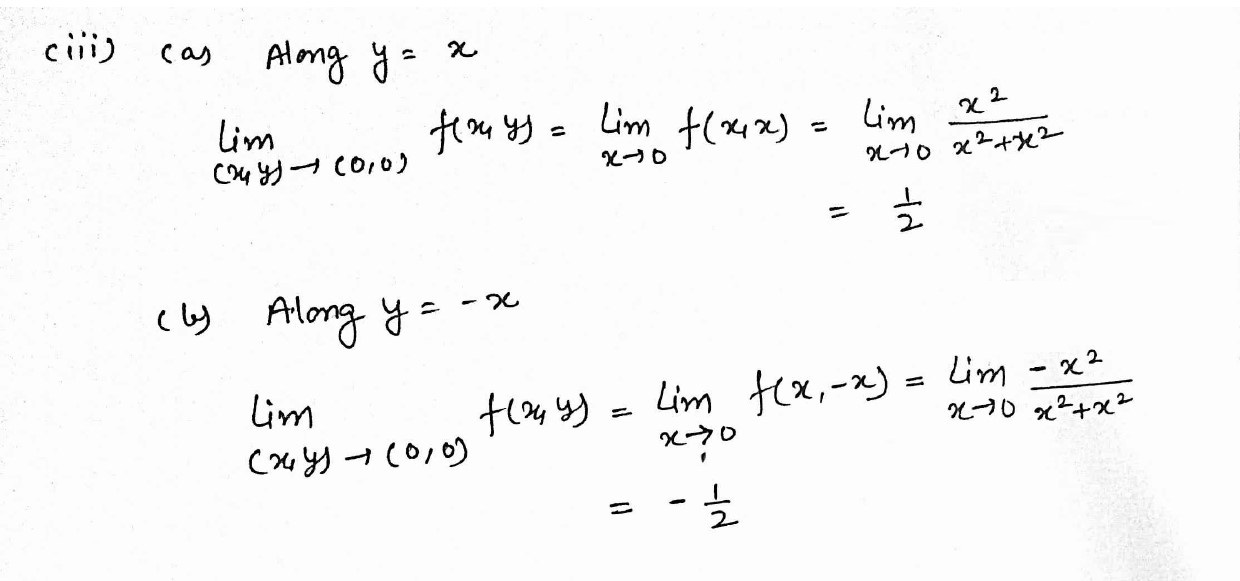 (iii) (a) Along y = x
lim_{(x,y)→(0,0)} f(x,y) = lim_{x→0} f(x,x) = lim_{x→0} x²/(x²+x²)
= 1/2
(b) Along y = -x
lim_{(x,y)→(0,0)} f(x,y) = lim_{x→0} f(x,-x) = lim_{x→0} -x²/(x²+x²)
= - 1/2